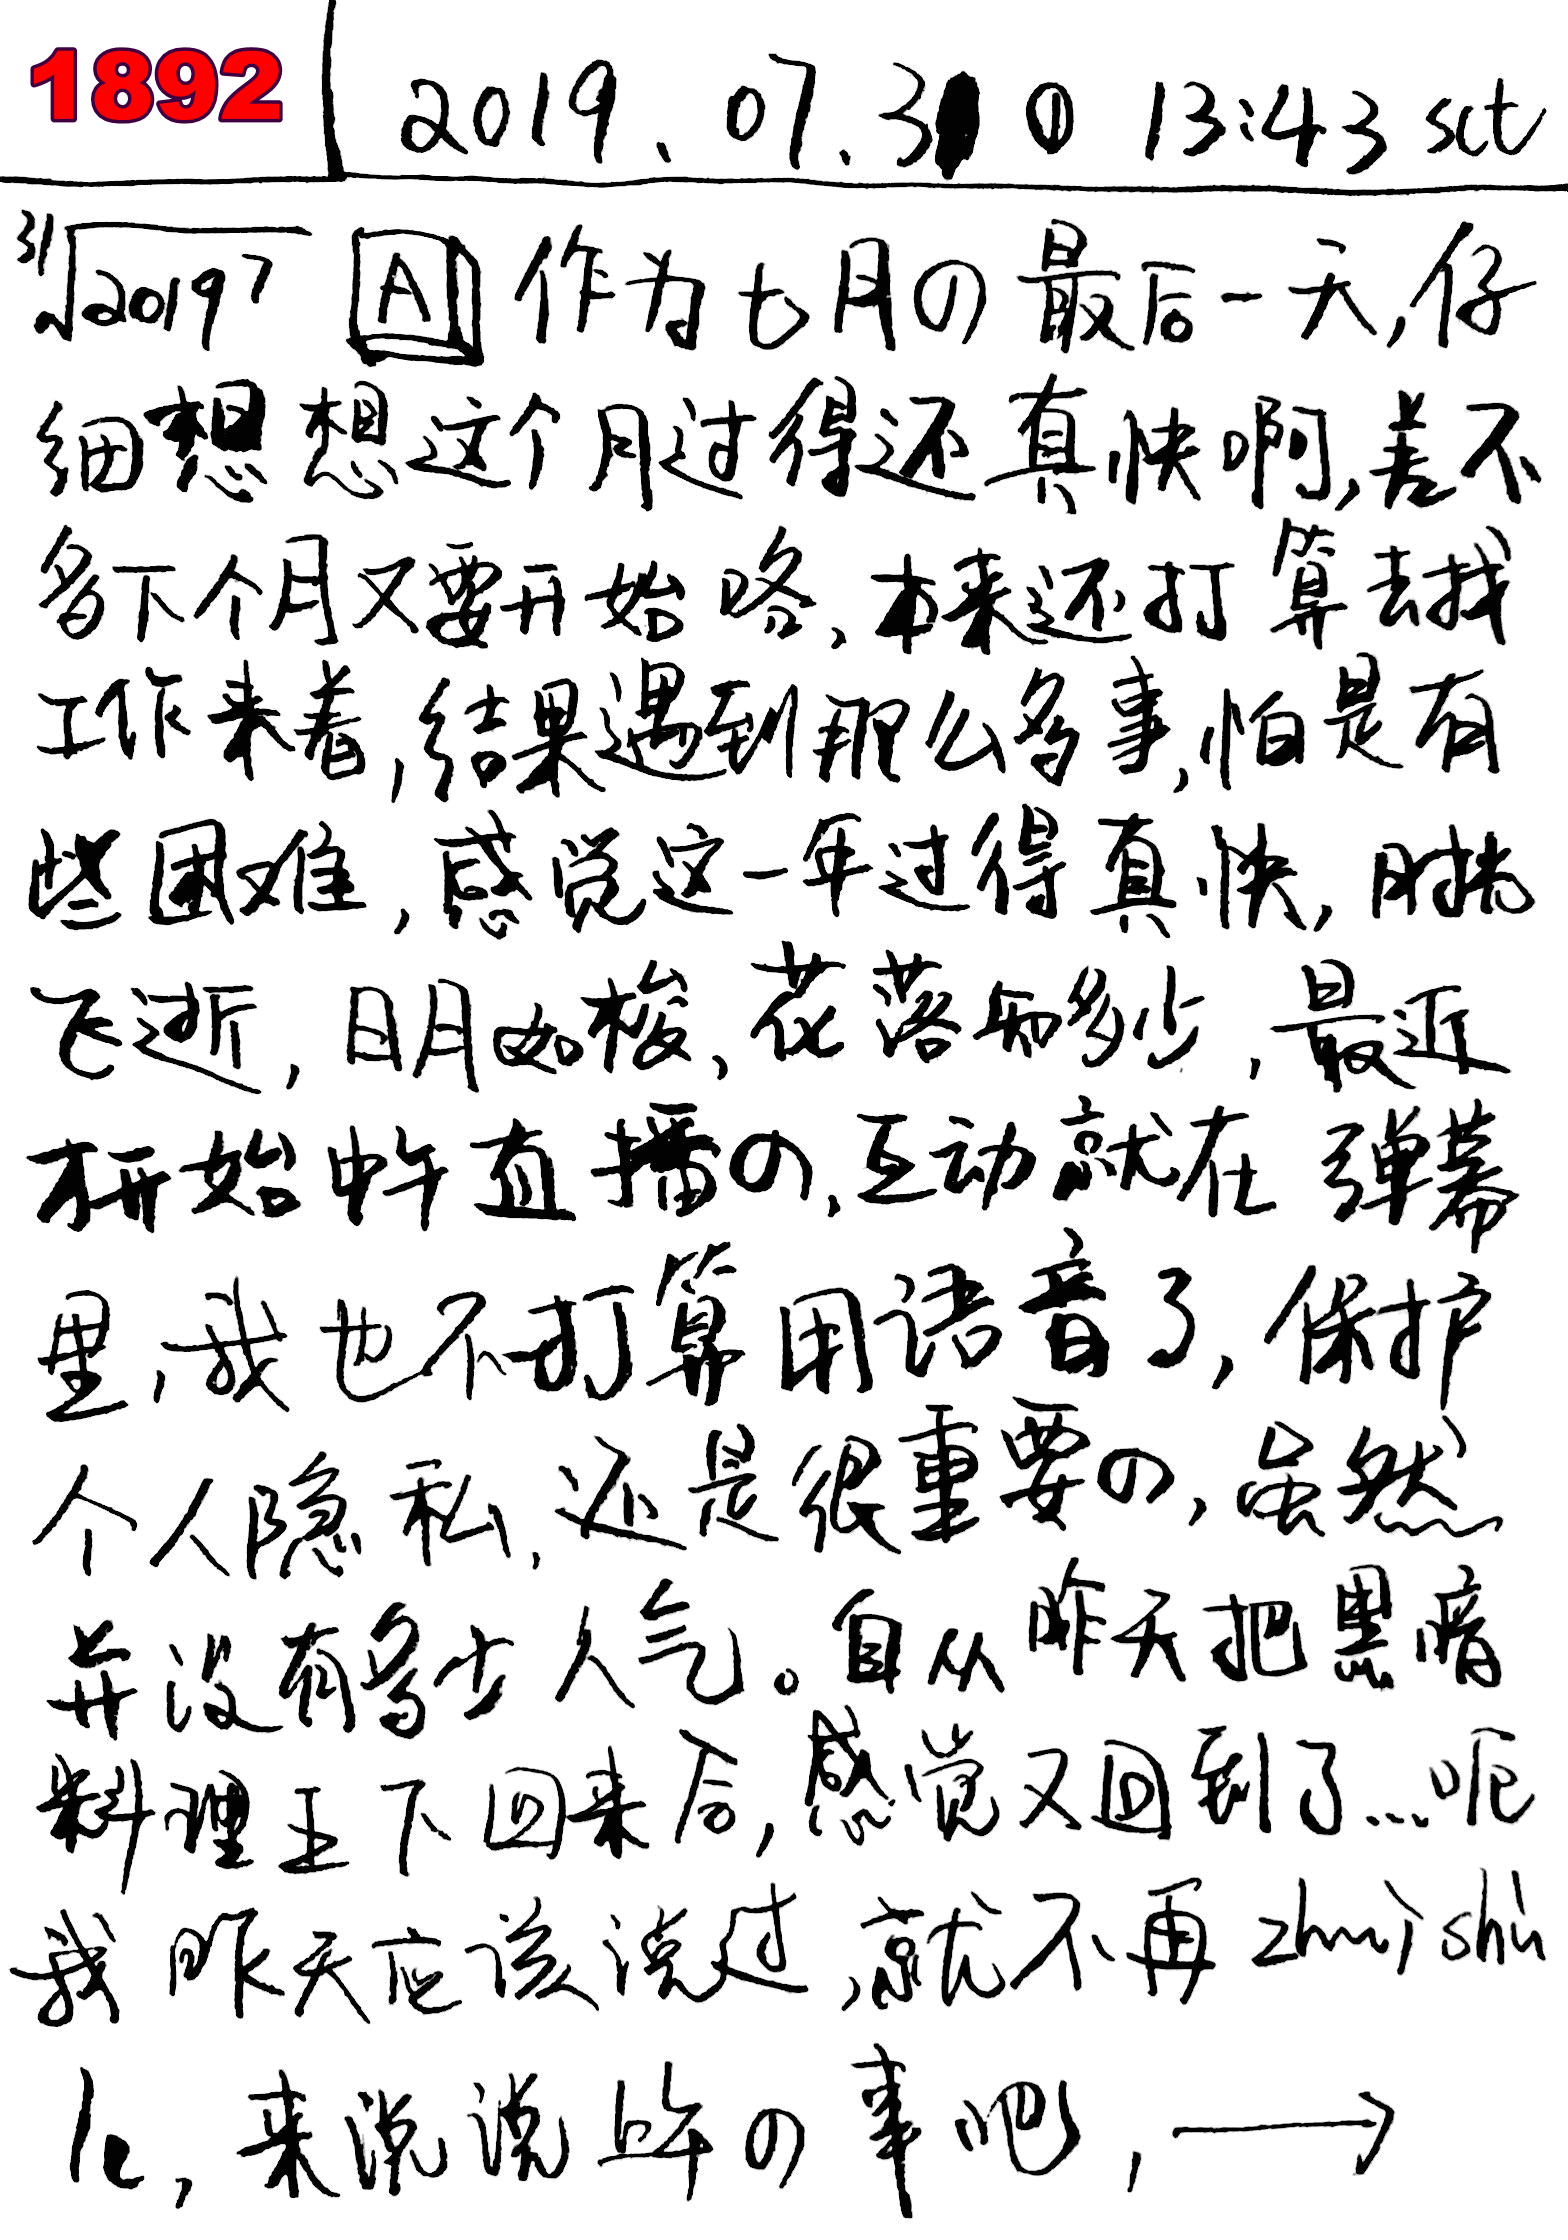 1892 2019.07.31 ① 13:43 sct
31√2019⁷ A 作为七月の最后一天,仔
细想想这个月过得还真快啊,差不
多下个月又要开始咯,本来还打算去找
工作来着,结果遇到那么多事,怕是有
些困难,感觉这一年过得真快,时光
飞逝,日月如梭,花落知多少,最近
开始中午直播の,互动就在弹幕
里,我也不打算用语音了,保护
个人隐私,还是很重要の,虽然
并没有多少人气。自从昨天把黑暗
料理王下回来后,感觉又回到了...呃
我昨天应该说过,就不再zhuì shù
le,来说说上午の事吧,→